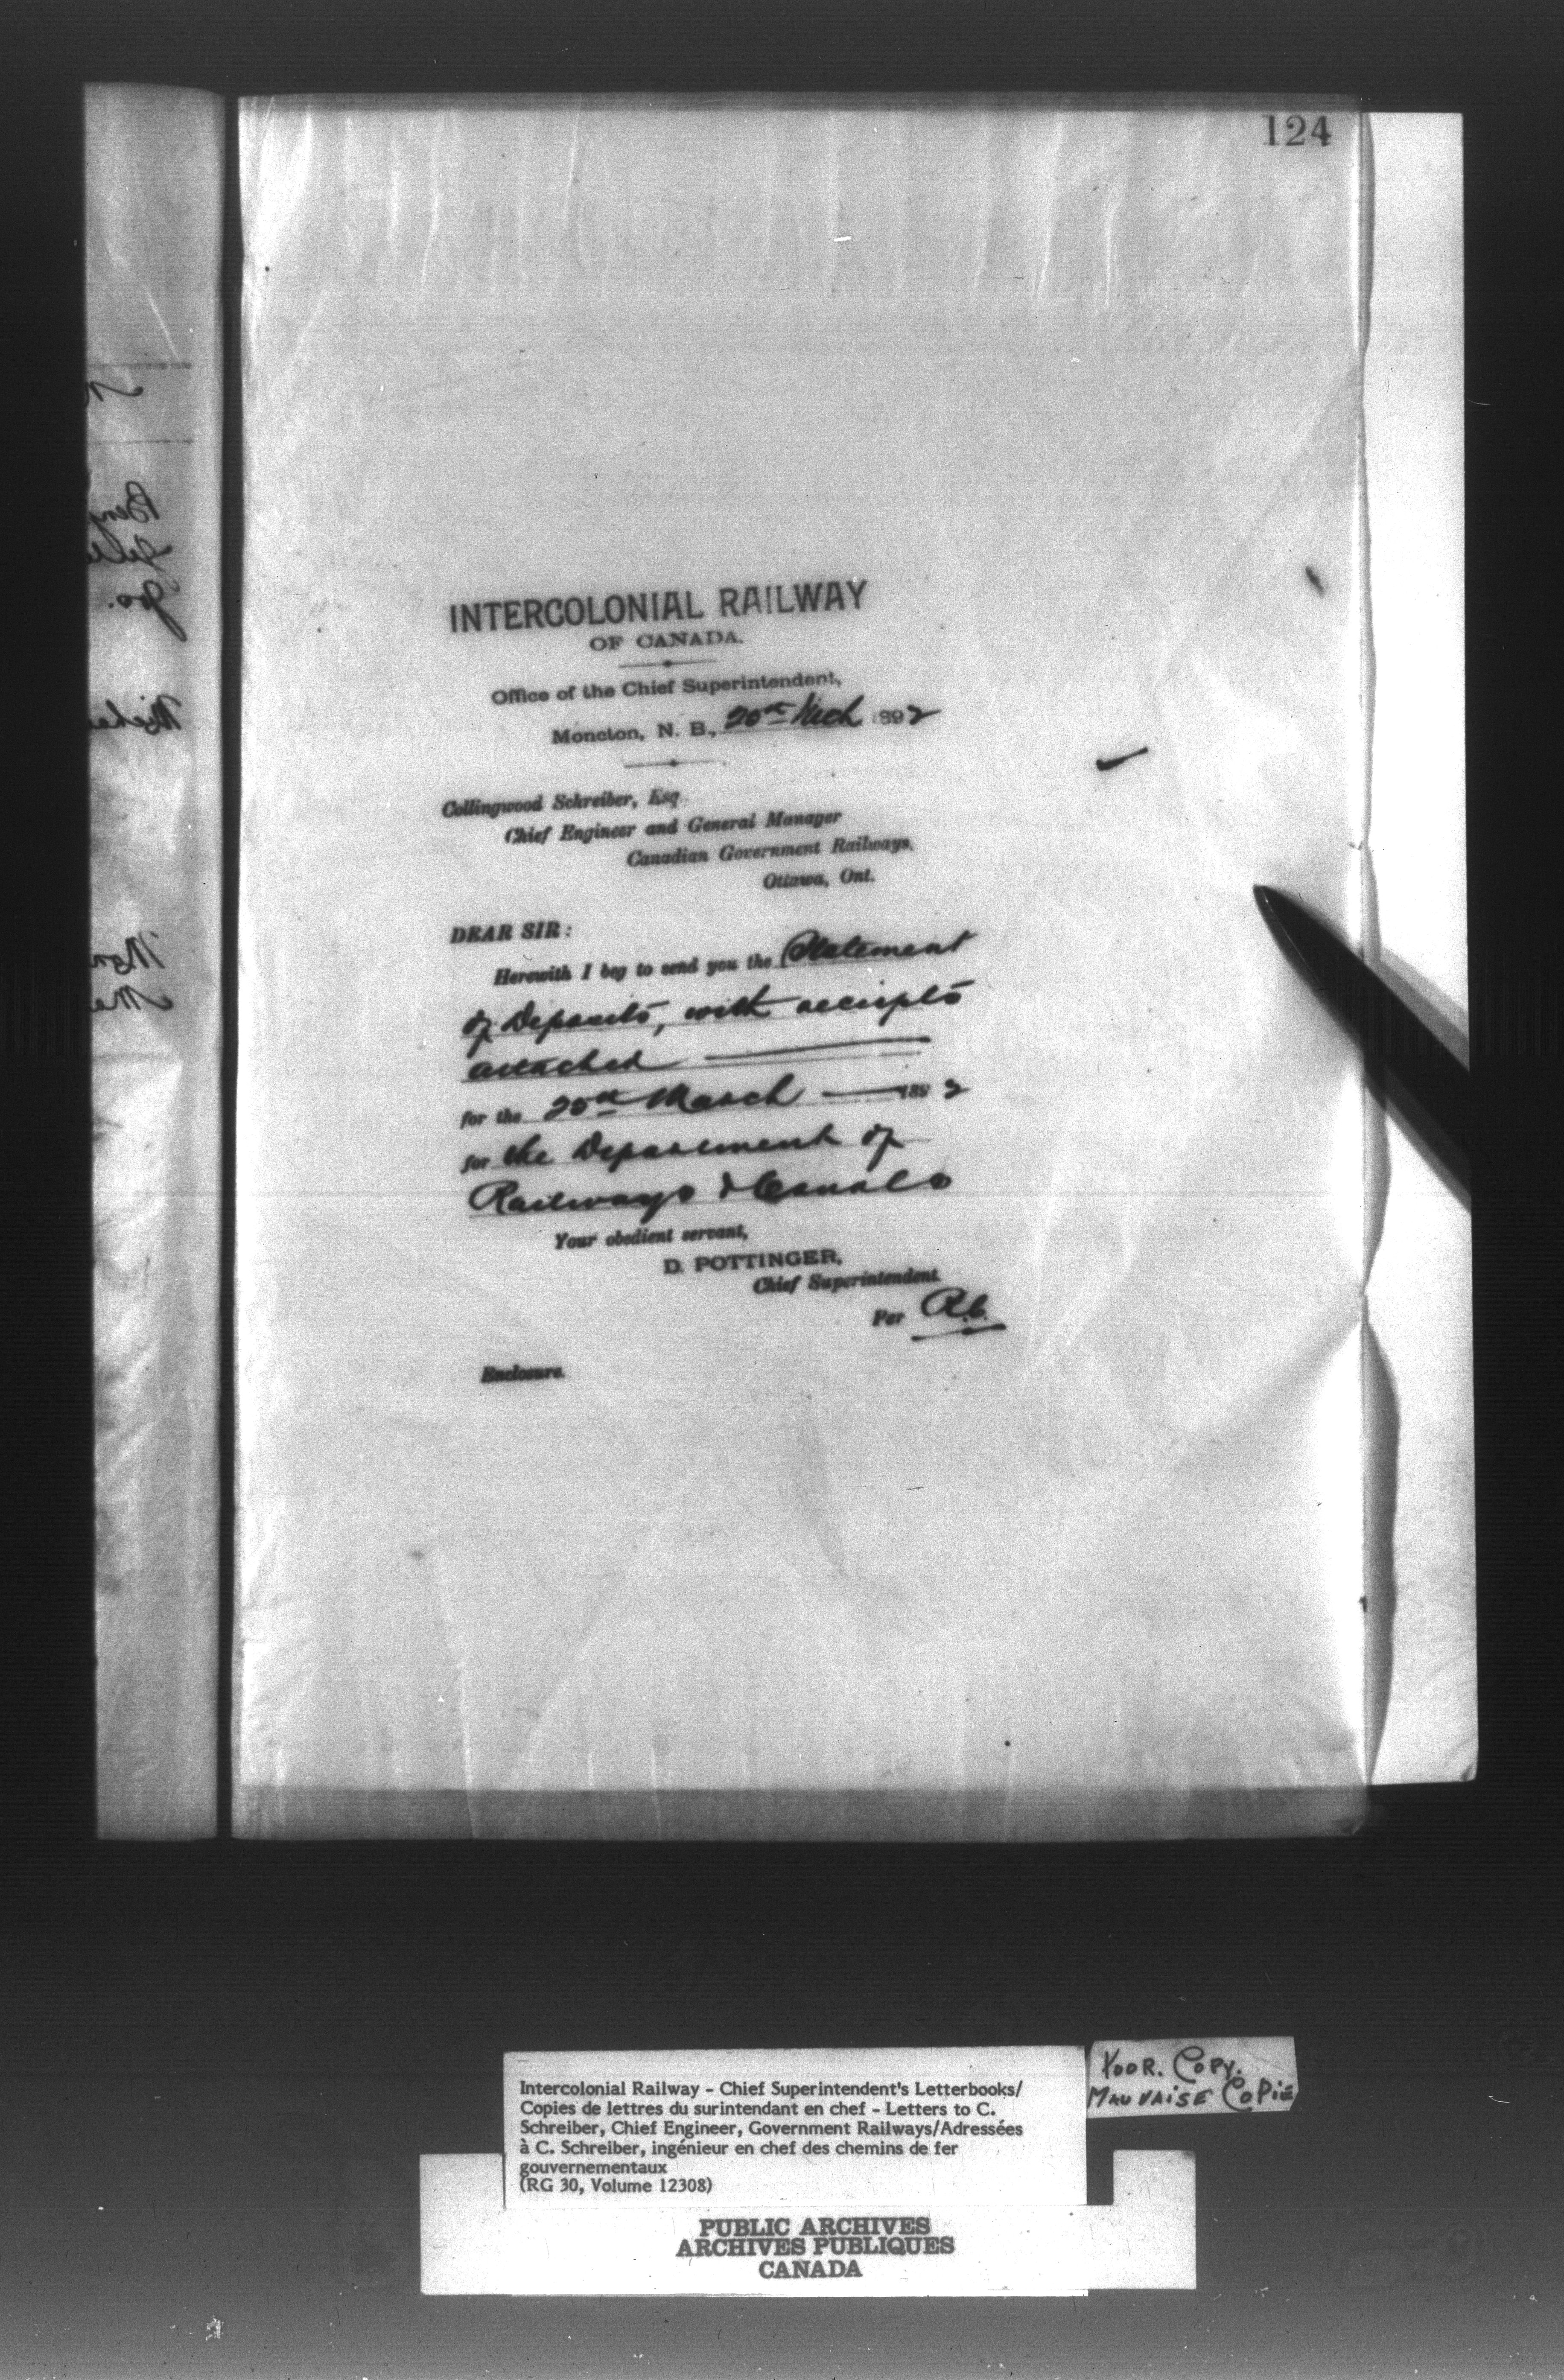 124
INTERCOLONIAL RAILWAY
OF CANADA.
Office of the Chief Superintendent,
Moncton, N. B., 20th Mch 1892
Collingwood Schreiber, Esq.
Chief Engineer and General Manager
Canadian Government Railways,
Ottawa, Ont.
DEAR SIR:
Herewith I beg to send you the Statement
of Deposits, with receipts
attached
for the 20th March 1892
for the Department of
Railways & Canals
Your obedient servant,
D. POTTINGER,
Chief Superintendent.
Per R.C.
Enclosure.
POOR. COPY.
MAUVAISE COPIE
Intercolonial Railway - Chief Superintendent's Letterbooks/
Copies de lettres du surintendant en chef - Letters to C.
Schreiber, Chief Engineer, Government Railways/Adressées
à C. Schreiber, ingénieur en chef des chemins de fer
gouvernementaux
(RG 30, Volume 12308)
PUBLIC ARCHIVES
ARCHIVES PUBLIQUES
CANADA